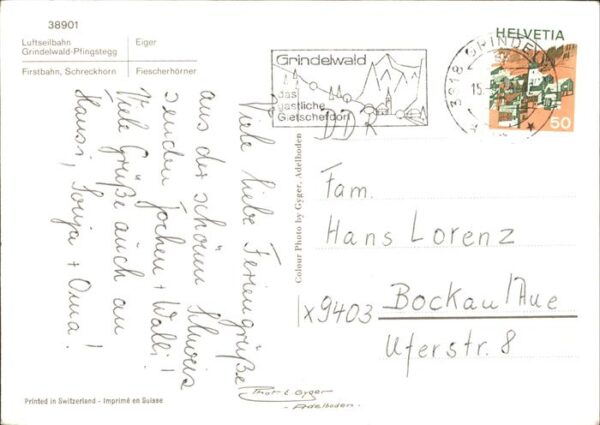 38901
Luftseilbahn
Grindelwald-Pfingstegg
Eiger
Firstbahn, Schreckhorn
Fiescherhörner
Grindelwald
das
gastliche
Gletscherdorf
3818 GRINDELW
15
HELVETIA
50
Viele liebe Feriengrüße
aus der schönen Schweiz
senden Jochen + Walli!
Viele Grüße auch an
Hansi, Sonja + Oma!
Colour Photo by Gyger, Adelboden
DDR
Fam.
Hans Lorenz
x9403 Bockau/Aue
Uferstr. 8
Printed in Switzerland - Imprimé en Suisse
Phot. E. Gyger
- Adelboden -